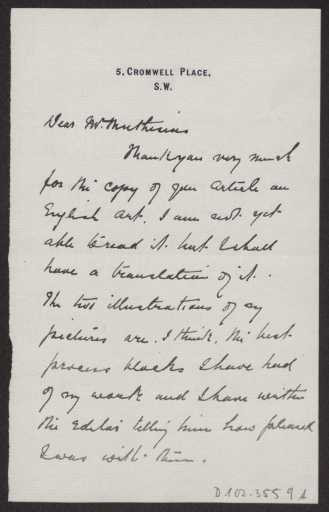 5, CROMWELL PLACE,
S.W.
Dear Mr. Muthesius
Thank you very much
for the copy of your article on
English Art. I am not yet
able to read it but I shall
have a translation of it.
The two illustrations of my
pictures are, I think, the best
process blocks I have had
of my work and I have written
the Editor telling him how pleased
I was with them.
D 102-3559 1